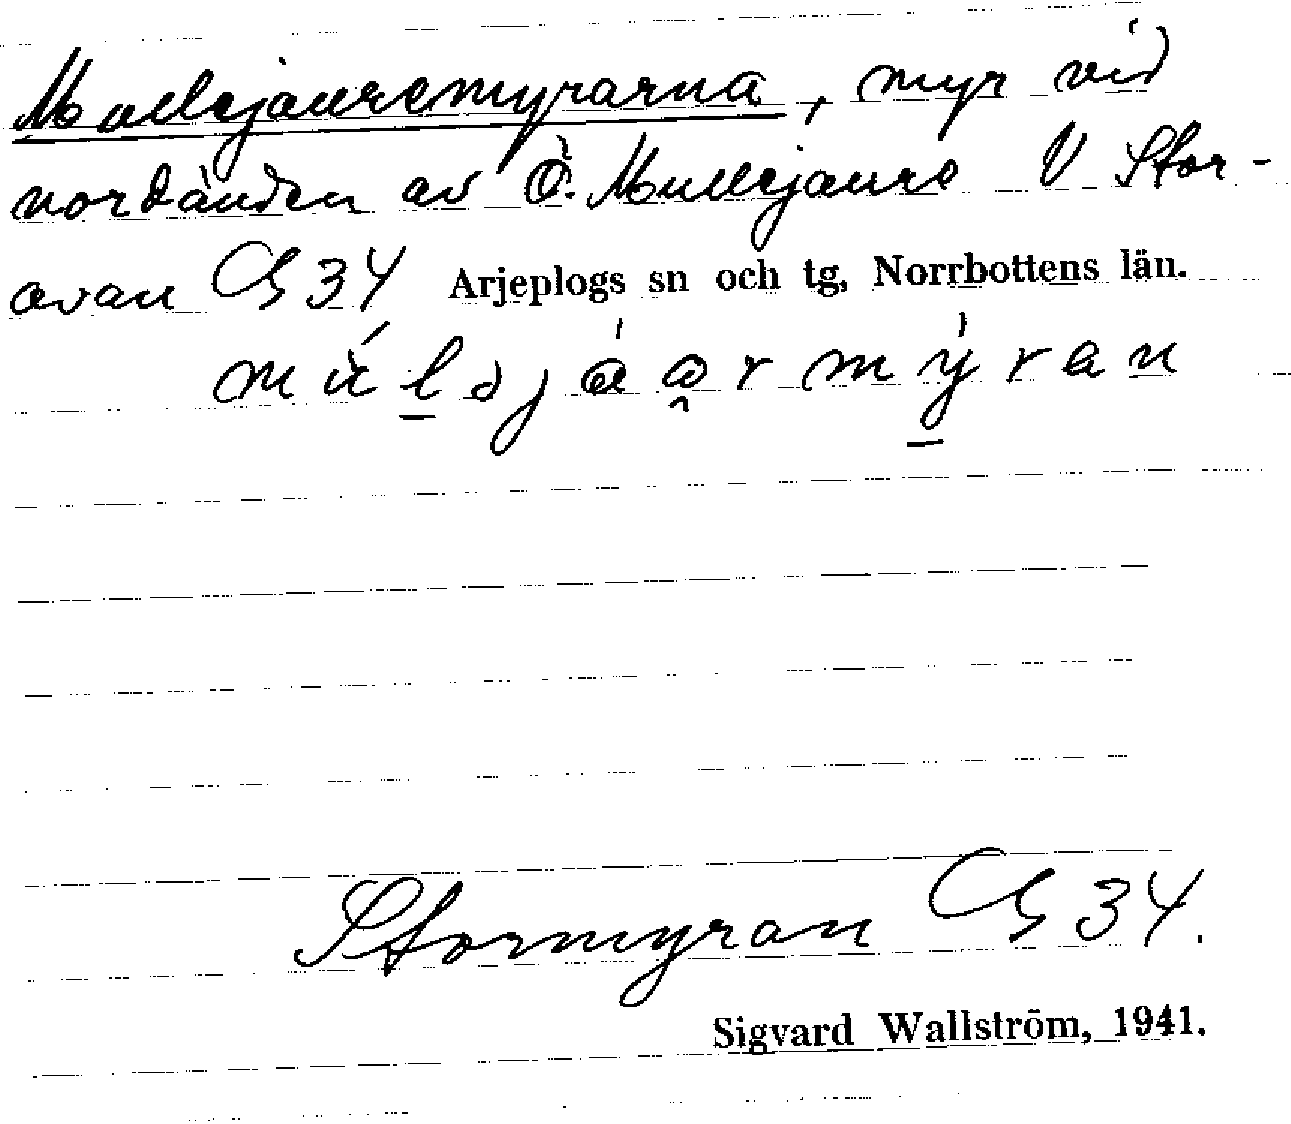 Mullejauremyrarna, myr vid
nordänden av Ö. Mullejaure V Stor-
avan G 34 Arjeplogs sn och tg, Norrbottens län.
Stormyran G 34.
Sigvard Wallström, 1941.